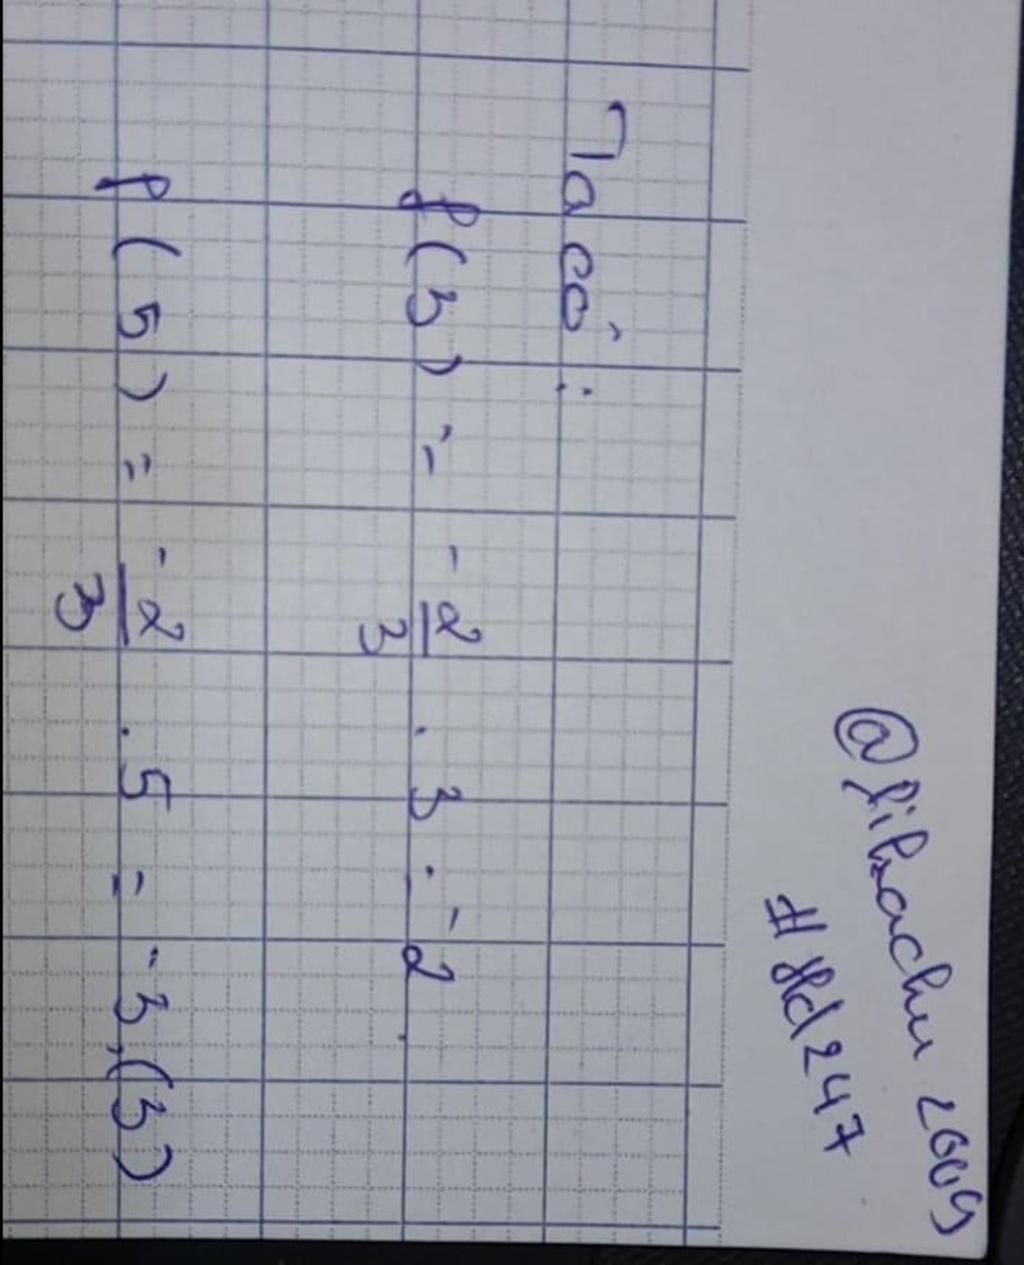 @pikachu2009
#Hd247
Ta có:
f(3) = -2/3 . 3 = -2.
f(5) = -2/3 . 5 = -3,(3)